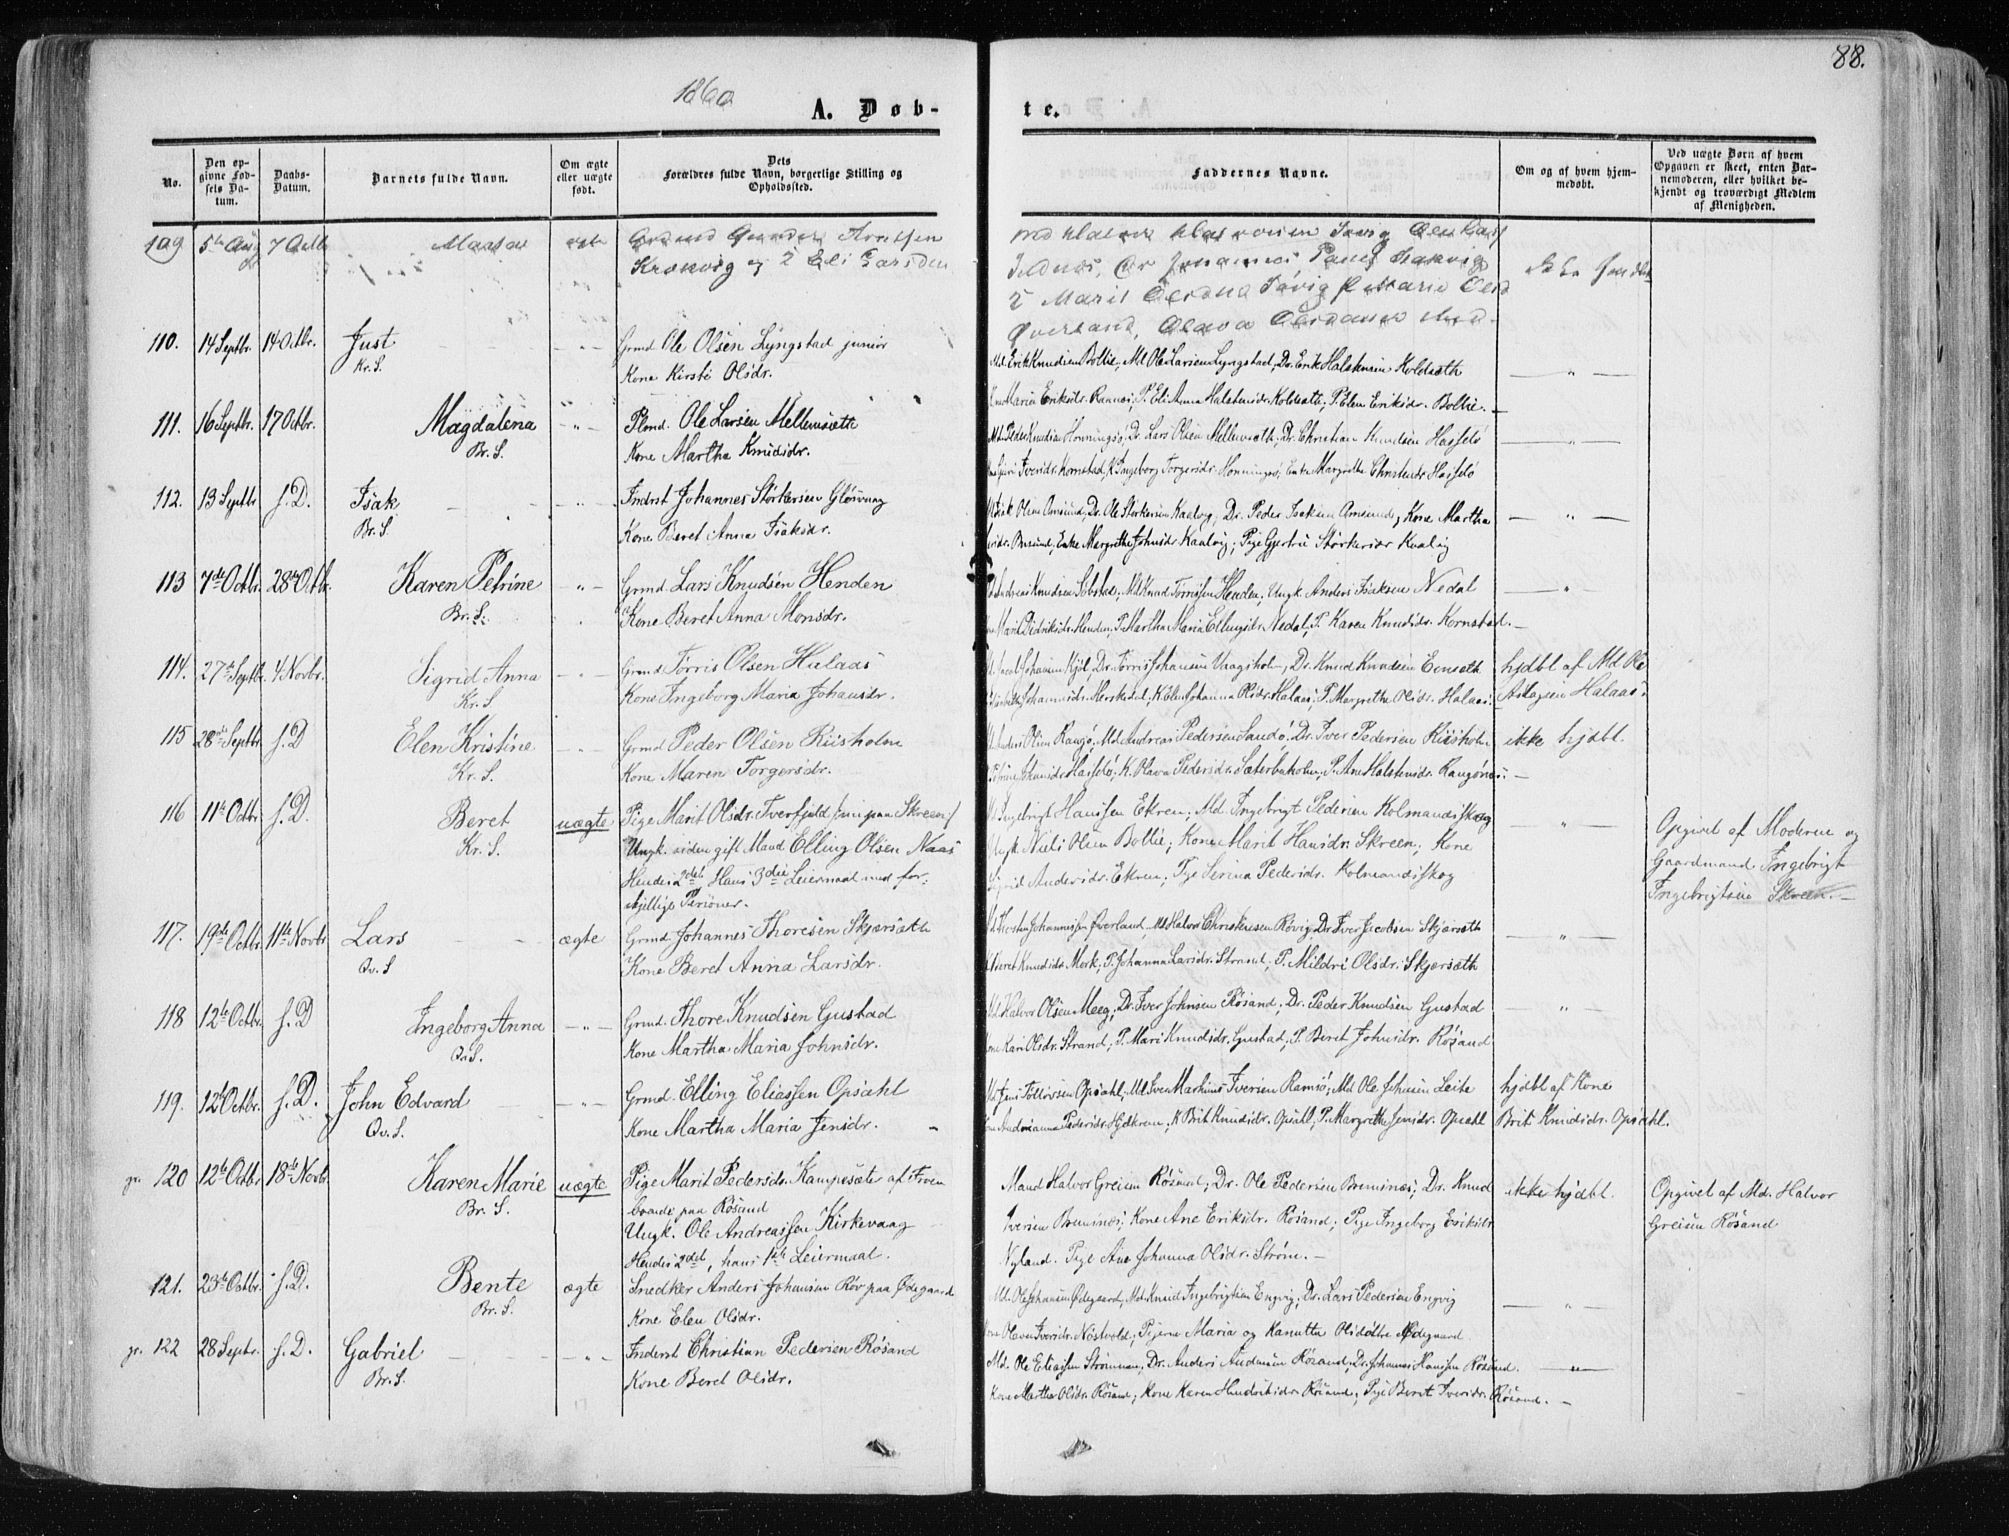 88.
1860
A. Døb-
te.
No.
Den op-
givne Fød-
sels Da-
tum.
Daabs-
Datum.
Barnets fulde Navn.
Om ægte
eller uægte
født.
Dets
Forældres fulde Navn, borgerlige Stilling og
Opholdssted.
Faddernes Navne.
Om og af hvem hjem-
medøbt.
Ved uægte Børn af hvem
Opgaven er skeet, enten Bar-
nemoderen, eller hvilket be-
kjendt og troværdigt Medlem
af Menigheden.
109 5te Aug 7 Octb
110. 14 Septbr. 14 Octbr. Just
Kr. S.
Grmd Ole Olsen Lyngstad junior
Kone Kirsti Olsdr.
Md. Erik Knudsen Bollie, Md Ole Larsen Lyngstad, Dr. Erik Halstensen Koldsæth
Maria Eriksdr. Ranæs; P. Eli Anna Halstensdr. Koldsæth; P. Elen Eriksdr. Bollie.
111. 16 Septbr. 17 Octbr. Magdalena
Br. S.
Plmd. Ole Larsen Mellemsætte
Kone Martha Knudsdr.
Md. Peder Knudsen Honningsø, Dr. Lars Olsen Mellemsæth; Dr. Christian Knudsen Hasselø
Iversdr. Kornstad, K. Ingeborg Torgersdr. Honningsø, Enke Margrethe Hasselø
112. 13 Septbr f. D. Isak
Br. S.
Indrst Johannes Størkersen Gløsvaag
Kone Beret Anna Isaksdr.
Olsen Omsund, Dr. Ole Størkersen Kaalvig, Dr. Peder Isaksen Omsund, Kone Martha
Enke Margrethe Johnsdr. Kaalvig; Pige Gjertru Størkersdr Kaalvig
113 7de Octbr. 28de Octbr. Karen Petrine
Br. S.
Grmd Lars Knudsen Henden
Kone Beret Anna Monsdr.
Knudsen Solstad, Md Knud Torrisen Henden, Ungk. Anders Isaksen Nedal
Marit Didriksdr. Henden; P. Martha Maria Ellingsdr. Nedal, P. Karen Knudsdr. Kornstad.
114. 27de Septbr. 4 Novbr. Sigrid Anna
Kr. S
Grmd Torris Olsen Halaas
Kone Ingeborg Maria Johansdr.
Johansen Kjøl, Dr. Torris Johansen Vaagsholm, Dr. Knud Knudsen Eenseth
Olsdr. Halaas, P. Margrethe Olsdr. Halaas.
hjdbt af Md Ole
Aslagsen Halaas.
115 28de Septbr f. D Elen Kristine
Kr. S.
Grmd Peder Olsen Riisholm
Kone Maren Torgersdr.
Anders Olsen Rangø, Md Andreas Pedersen Sandø, Dr. Iver Pedersen Riisholm
Hasselø, K. Olava Pedersdr. Sæterboholm, P. Ane Halstensdr. Rangønes.
ikke hjdbt.
116 11te Octbr. f. D. Beret
Kr. S.
uægte
Pige Marit Olsdr. Tverfjeld paa Skreen/
Ungk. siden gift Mand Elling Olsen Naas
Hendes 2det Hans 3die Leiermaal med for-
skjellige Personer.
Ingebrigt Hanssen Ekren; Md. Ingebrigt Pedersen Kolmandsskog
Ungk. Niels Olsen Bollie; Kone Marit Hansdr. Skreen, Kone
Sigrid Andersdr. Ekren, Pige Serina Pedersdr. Kolmandsskog
Opgivet af Moderen og
Gaardmand Ingebrigt
Ingebrigtsen Skreen.
117. 19de Octbr. 11te Novbr Lars
Qv. S
ægte
Grmd. Johannes Thoresen Skjersæth
Kone Beret Anna Larsdr.
Johannessen Øverland, Md Halvor Christensen Røvig, Dr. Iver Jacobsen Skjersæth
Beret Knudsdr. Mork; P. Johanna Larsdr. Strand, P. Mildri Olsdr. Skjersæth
118 12te Octbr. f. D Ingeborg Anna
Qv. S.
Grmd. Thore Knudsen Gustad
Kone Martha Maria Johnsdr.
Md Halvor Olsen Meeg; Dr. Iver Johnsen Røsand, Dr. Peder Knudsen Gustad
Kone Kari Olsdr. Strand; P. Mari Knudsdr. Gustad, P. Beret Johnsdr. Røsand
119. 12te Octbr. f. D. John Edvard
Qv. S.
Grmd. Elling Eliassen Opsahl
Kone Martha Maria Jensdr.
Md Jens Opsahl, Md. Iver Markus Iversen Ramsø, Md Ole Johnsen Leite
Pedersdr. K Brit Knudsdr. Opsahl, P. Margrethe Jensdr. Opsahl
hjdbt af Kone
Brit Knudsdr. Opsahl.
gr. 120 12te Octbr 18de Novbr. Karen Marie
Br. S.
uægte
Pige Marit Pedersdr. Kampesæter af Froen
boende paa Røsand
Ungk. Ole Andreassen Kirkevaag
Hendes 2det, hans 1ste Leiermaal.
Mand Halvor Greisen Røsand; Dr. Ole Pedersen Bremsnæs, Dr. Knud
Iversen Bremsnæs; Kone Ane Eriksdr. Røsand; Pige Ingeborg Eriksdr
Nyland. Pige Ane Johanna Olsdr. Strøm.
ikke hjdbt.
Opgivet af Md. Halvor
Greisen Røsand
121. 23de Octbr. f. D. Bente
Br. S.
ægte
Snedker Anders Johansen Røv paa Ødegaard
Kone Elen Olsdr.
Md. Ole Johansen Ødegaard, Md. Knud Ingebrigtsen Engvig; Dr. Lars Pedersen Engvig
Iversdr. Nostvold, Pigerne Maria og Kanutta Olsdøttre Ødegaard
gr. 122 28 Septr. f. D. Gabriel
Br. S.
Inderst Christian Pedersen Røsand
Kone Beret Olsdr.
Md. Ole Eliassen Strømmen; Dr. Anders Andersen Røsand; Dr. Johannes Hanssen Røsand.
Kone Martha Olsdr. Røsand; Kone Karen Hendriksdr. Røsand, Pige Beret Iversdr. Røsand.